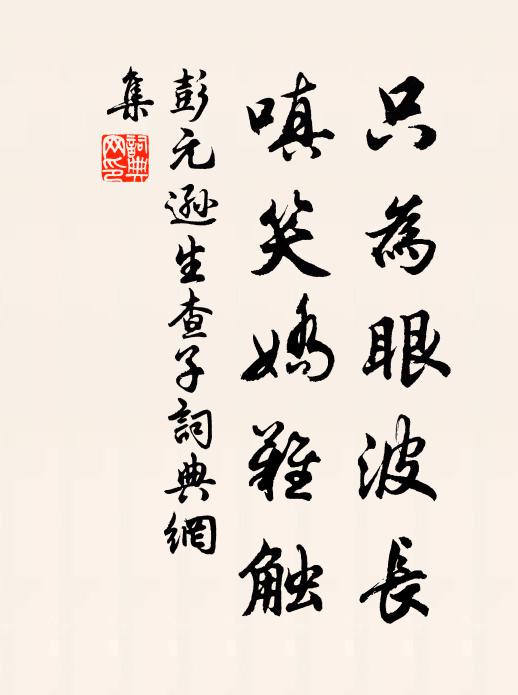 只為眼波長
嗔笑嬌難触
彭元遜生查子詞典網
集
詞典
网印